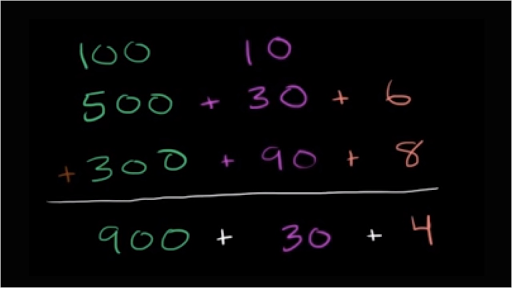 100 10
500 + 30 + 6
+ 300 + 90 + 8
900 + 30 + 4